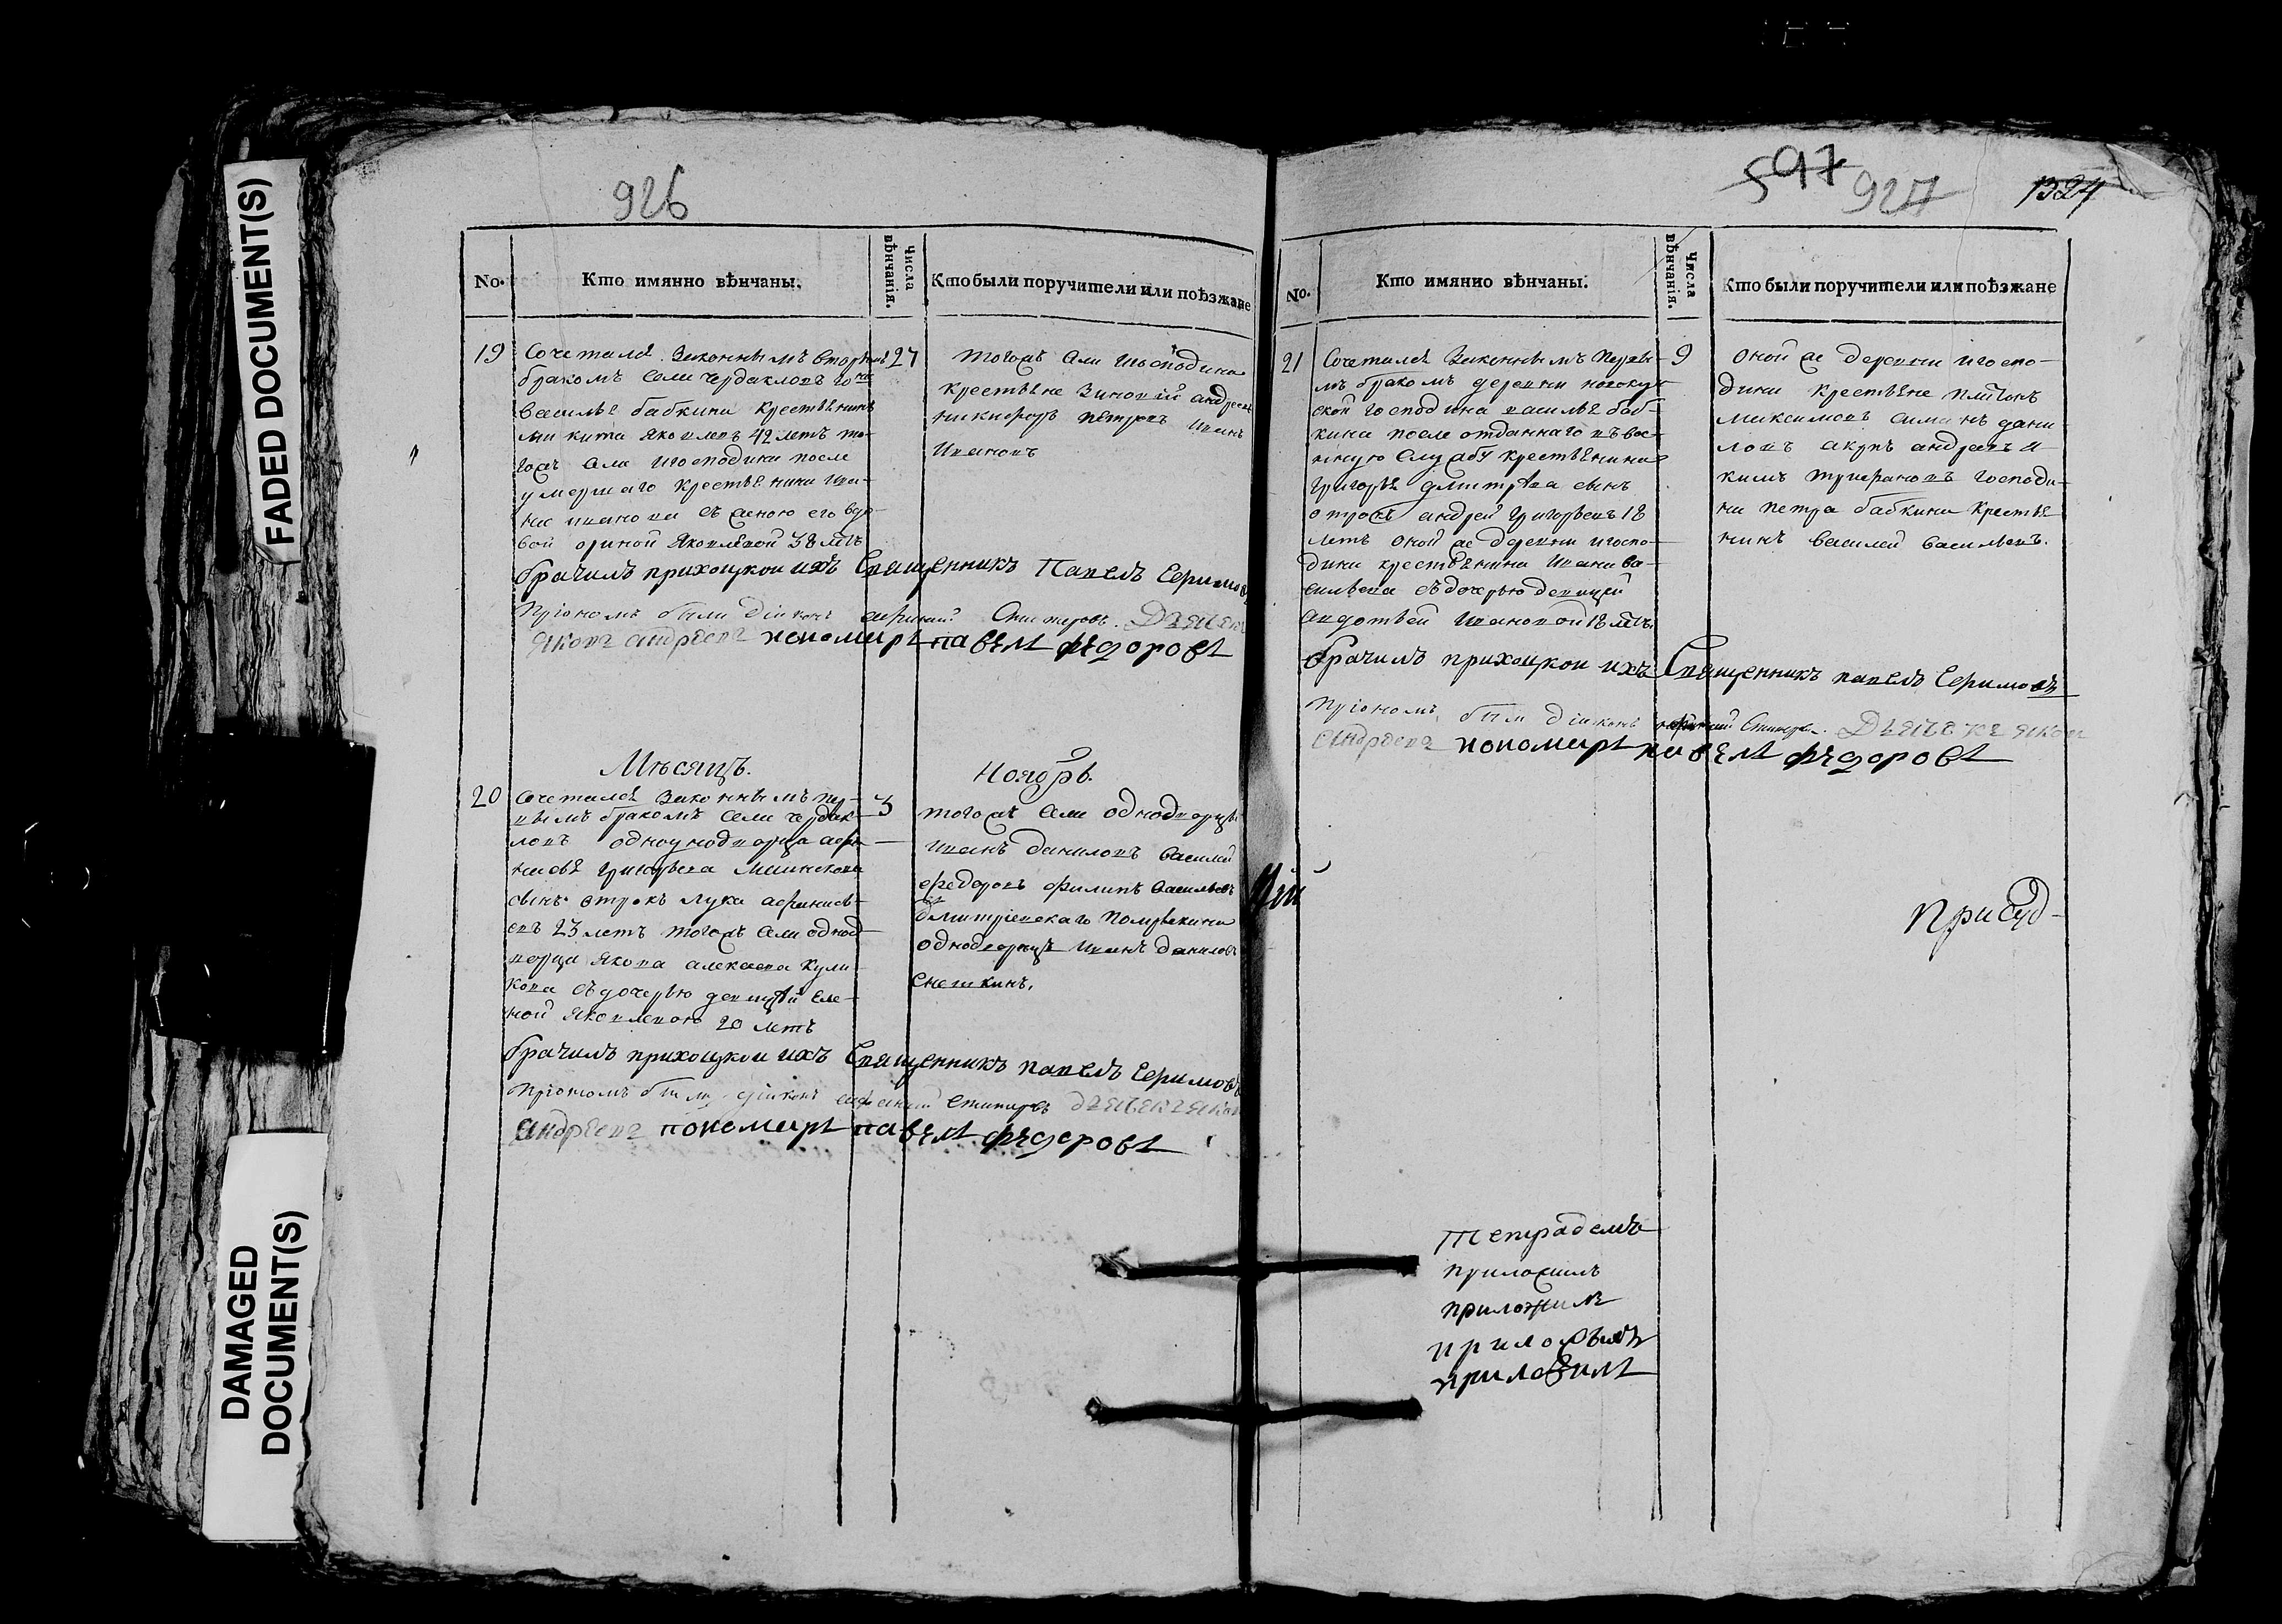 FADED DOCUMENT(S)
DAMAGED
DOCUMENT(S)
926
No.
Кто имянно вѣнчаны.
Числа
вѣнчанія.
Кто были поручители или поѣзжане
19
27
Сочетался Законнымъ вторымъ
бракомъ Села Чердакловъ го
василья бабкина крестьянинъ
никита Яковлевъ 42 летъ то-
гожъ села и господина после
умершаго крестьянина ива-
на иванова съ женою его вдо-
вой ориной Яковлевой 38 летъ
тогожъ Села и господина
крестьяне Зиновий андреевъ
никифоръ петровъ иванъ
Ивановъ
брачилъ прихоцкой ихъ Священникъ Павелъ Серимовъ
Пріономъ были діаконъ
Яковъ андреевъ пономарь павелъ федоровъ
Мѣсяцъ.
Ноябрь.
20
3
Сочетался Законнымъ пер-
вымъ бракомъ Села чердак-
ловъ однодворца афа-
насья григорьева
сынъ отрокъ лука афанасье-
въ 23 летъ тогожъ Села однод-
ворца Якова алексеева кули-
кова съ дочерью девицей Еле-
ной Яковлевою 20 летъ
тогожъ Села однодворцы
иванъ даниловъ василий
федоровъ филипъ васильевъ
дмитріевскаго
однодворецъ иванъ даниловъ
брачилъ прихоцкой ихъ Священникъ павелъ Серимовъ
Пріономъ были діаконъ
андреевъ пономарь павелъ федоровъ
597
927
1324
No.
Кто имянно вѣнчаны.
Числа
вѣнчанія.
Кто были поручители или поѣзжане
21
9
Сочетался Законнымъ первы-
мъ бракомъ деревни
господина василья баб-
кина после отданнаго въ вое-
нную службу крестьянина
григорья дмитрева сынъ
отрокъ андрей григорьевъ 18
летъ оной же деревни и госпо-
дина крестьянина ивана ва-
сильева съ дочерью девицей
авдотьей ивановой 18 летъ
оной же деревни и госпо-
дина крестьяне платонъ
максимовъ дани-
ловъ андреевъ
кимъ трифановъ господи-
на петра бабкина крестья-
нинъ василей васильевъ.
брачилъ прихоцкой ихъ Священникъ павелъ Серимовъ
Пріономъ были діаконъ
андреевъ пономарь павелъ федоровъ
При Суд-
Тетрадемъ
приложилъ
приложилъ
приложилъ
приложилъ